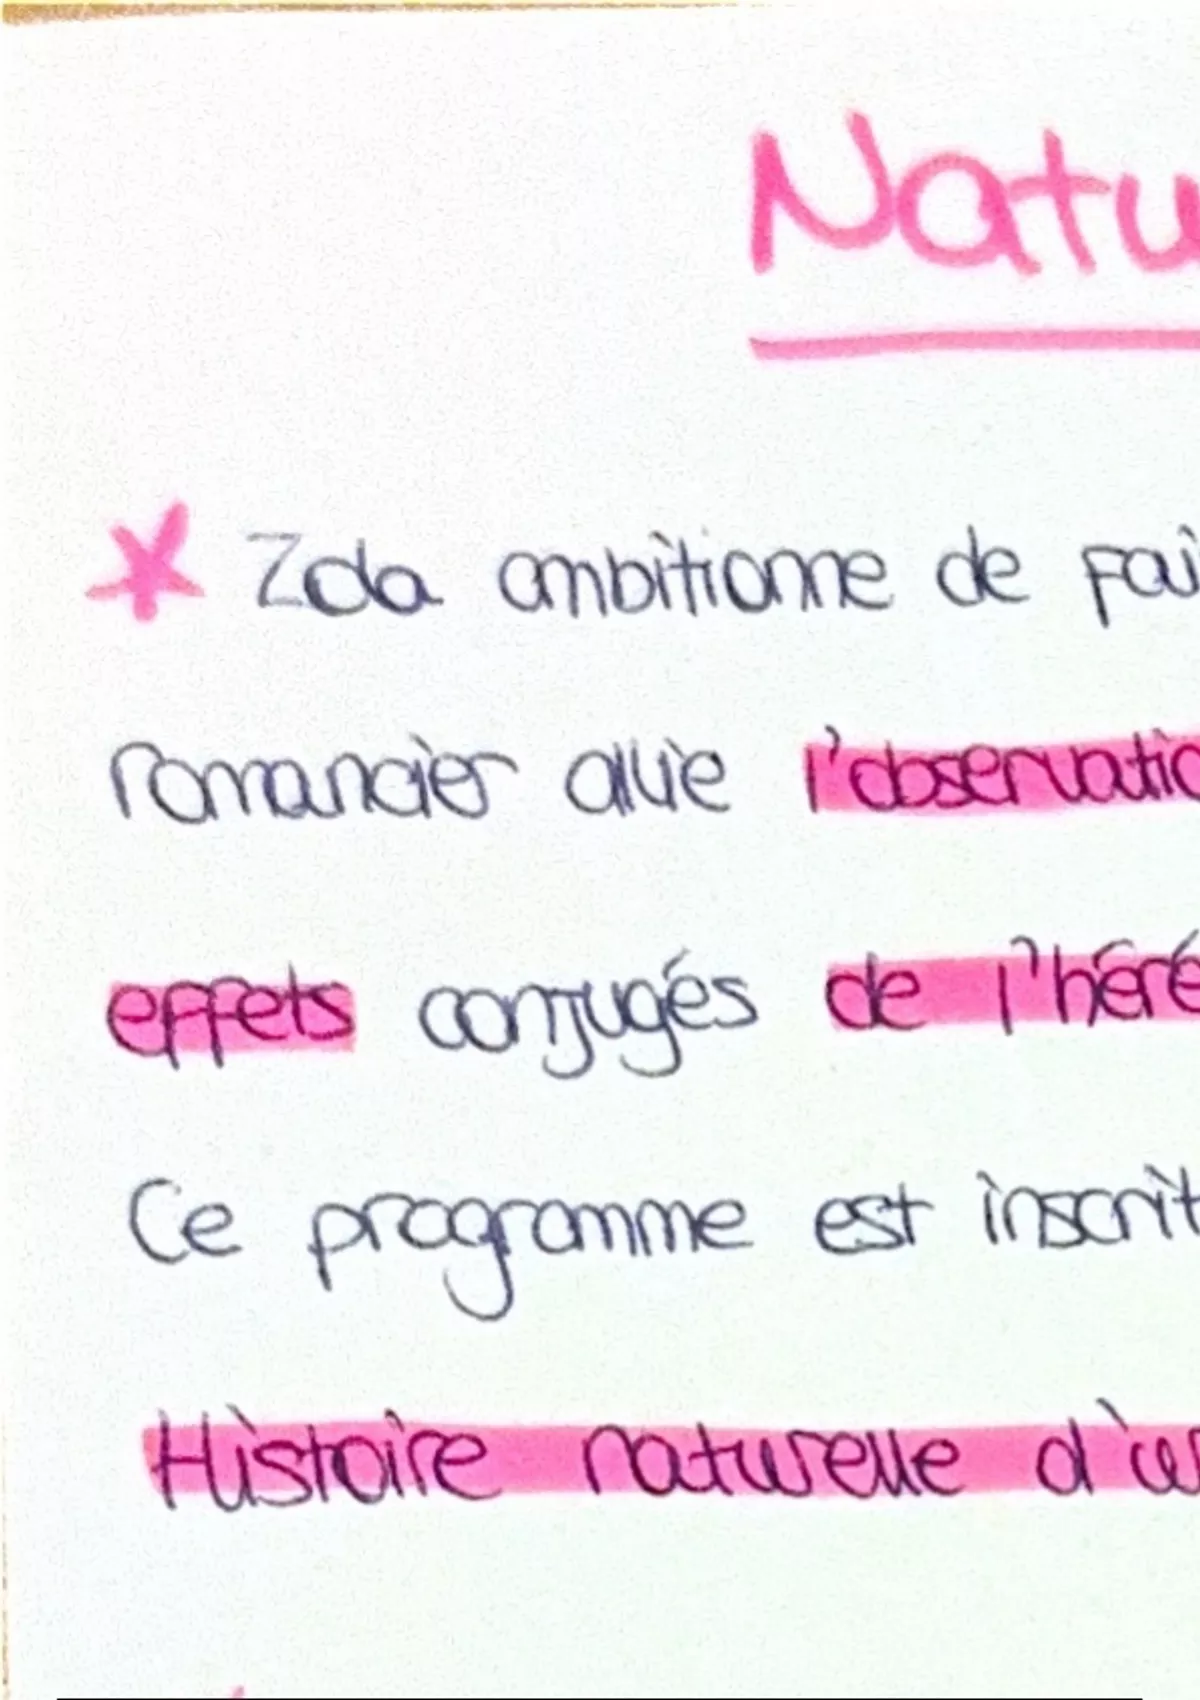 Natu
Zola ambitionne de fai
romancier allie l'observatio
effets conjugés de l'héré
Ce programme est inscrit
Histoire naturelle d'un